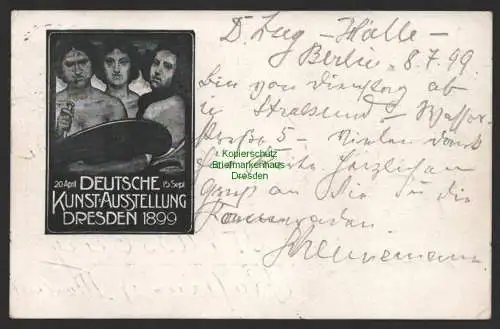 D. Zug - Halle -
Berlin - 8.7.99.
bin von Dienstag ab
in Stralsund - Wasser-
straße 5 - Vielen Dank
Karte herzlichen
Gruß an Sie u die
20. April DEUTSCHE 15. Sept.
KUNST-AUSSTELLUNG
DRESDEN 1899
Kopierschutz
Briefmarkenhaus
Dresden